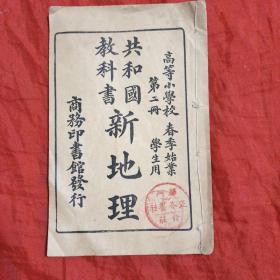 高等小學校 春季始業
第二冊 學生用
共和國
教科書
新地理
商務印書館發行